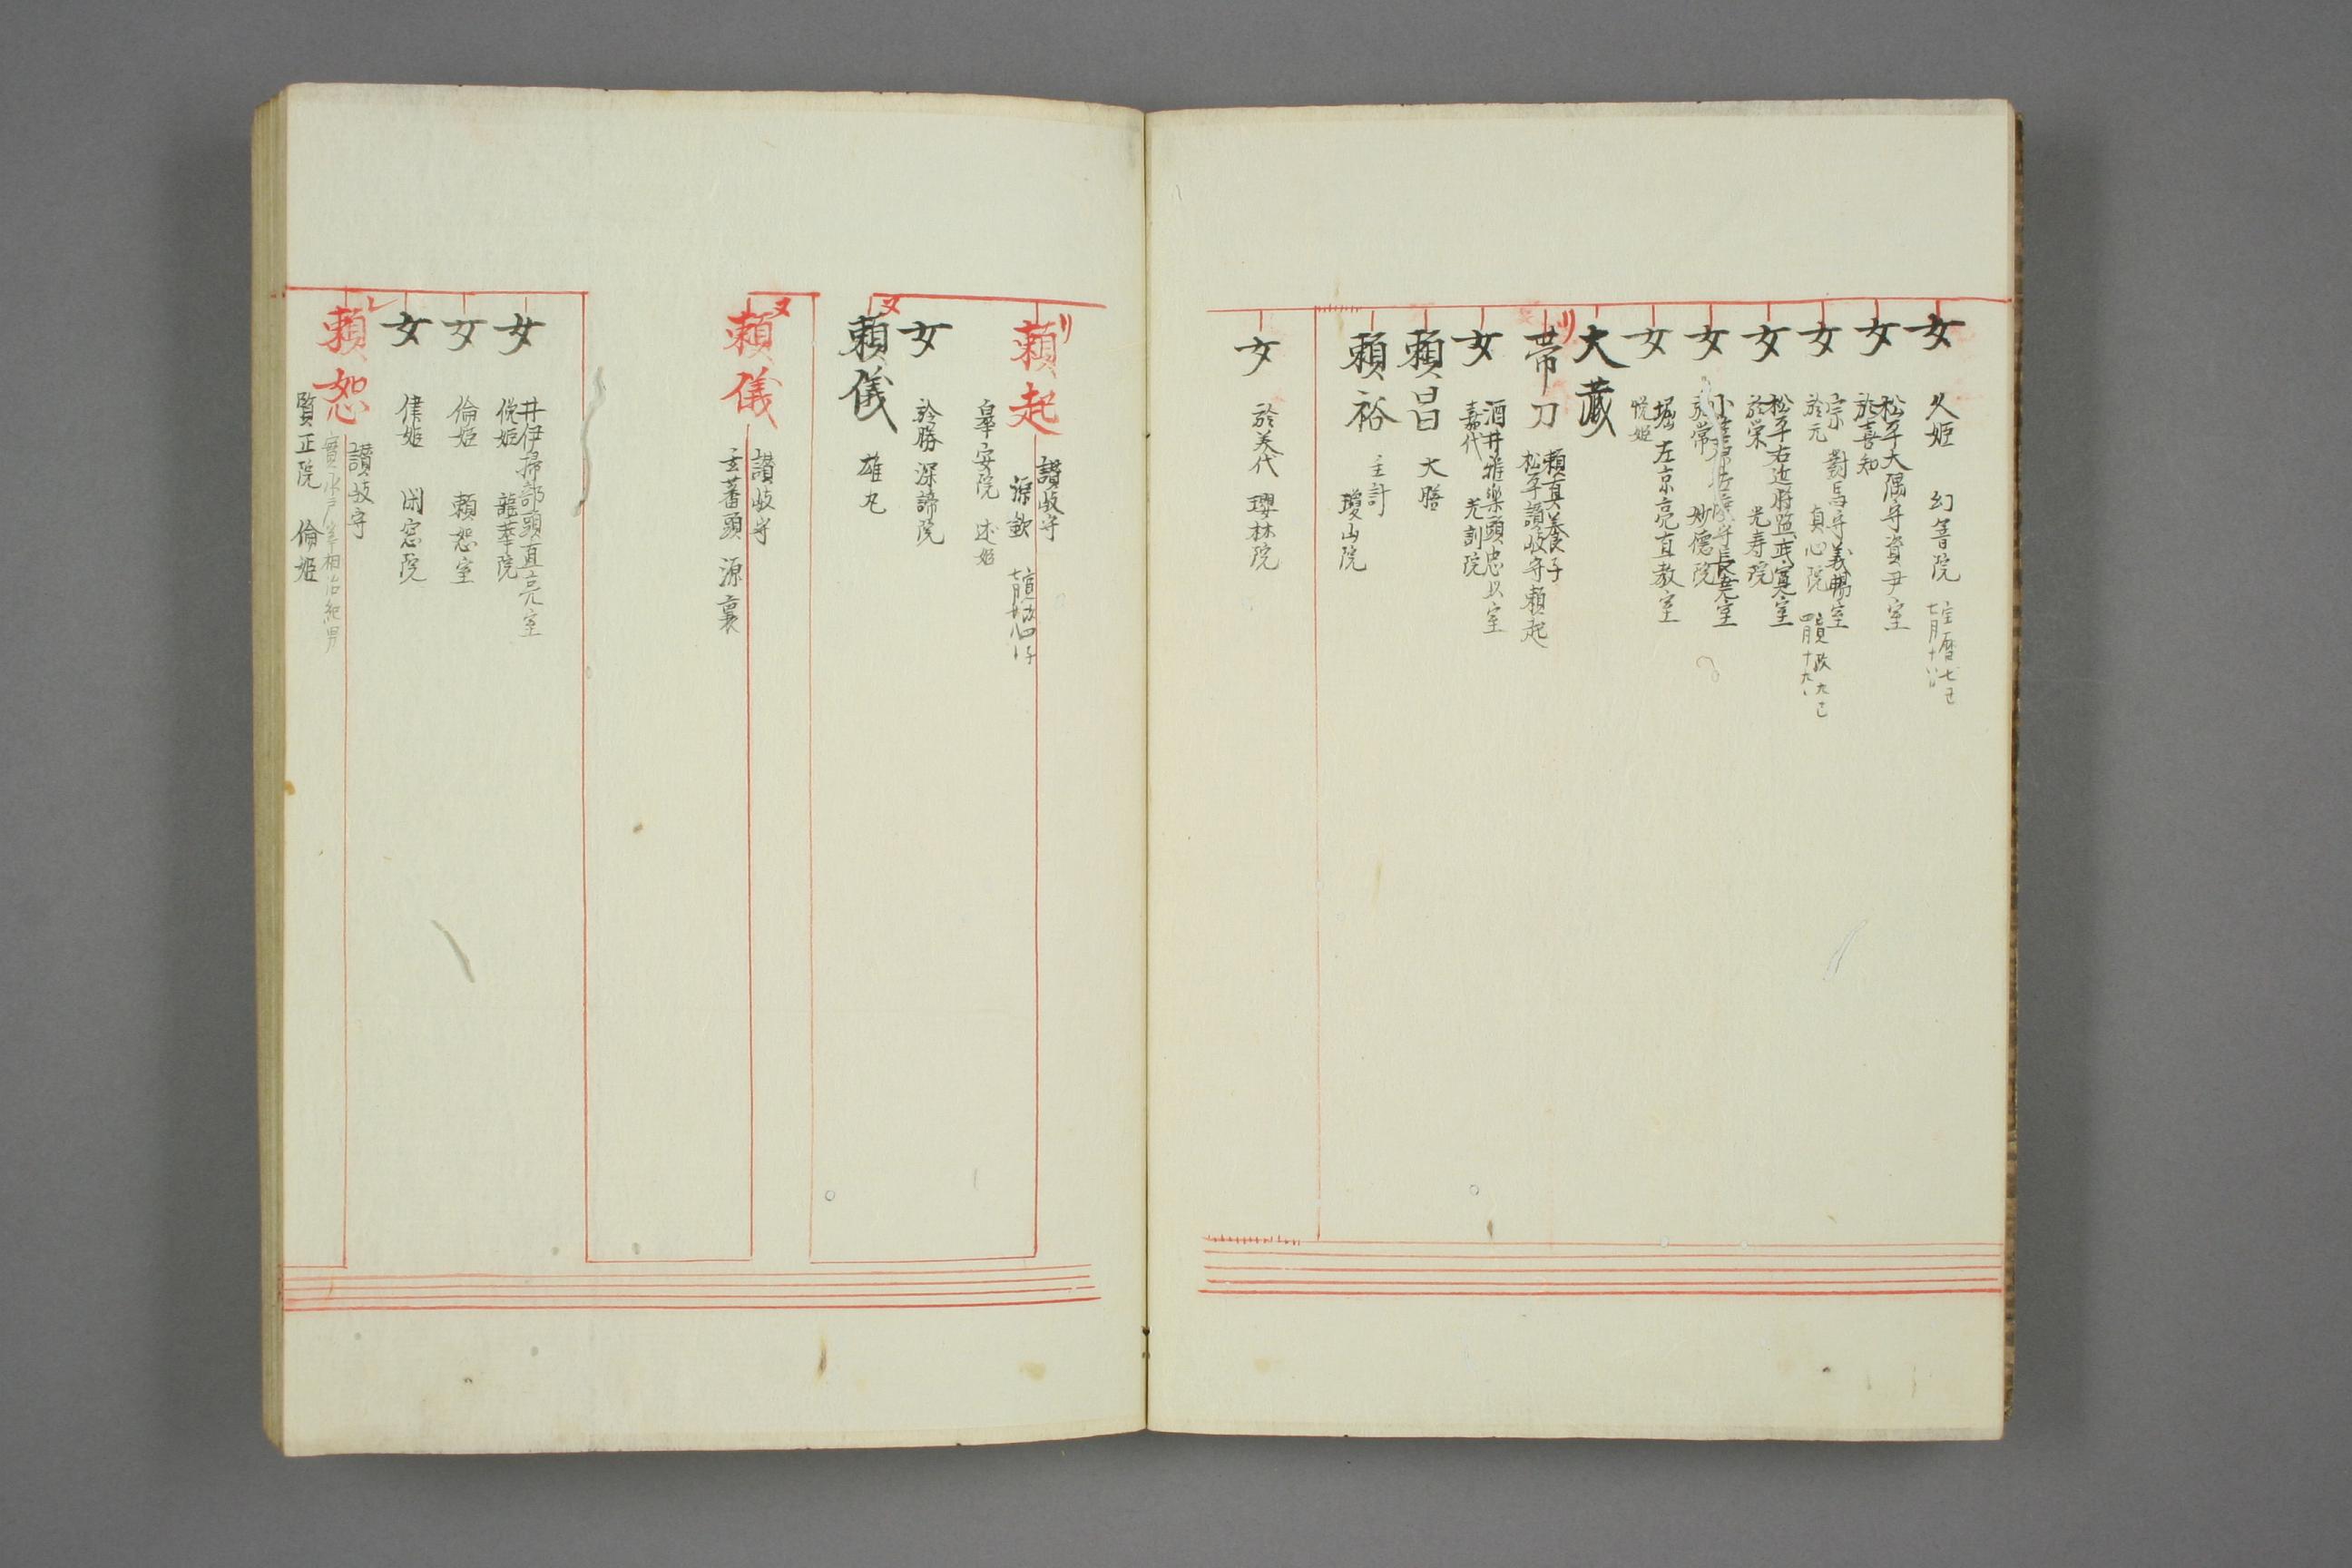 女
久姫 幻
女
松平大隅守資尹室
於喜知
女
宗對馬守義暢室
於元 真心院
女
松平右近将監武寛室
於栄 光寿院
女
妙徳院
女
堀左京亮直教室
悦姫
大蔵
リ
帯刀
頼真養子
松平讃岐守頼起
女
酒井雅楽頭忠以室
嘉代 光訓院
頼昌 大膳
頼裕
主計
瓊山院
女 於美代 瓔林院
リ
頼起
讃岐守
源歓
皐安院 述姫
女 於勝 深諦院
ヌ
頼儀 雄丸
ヌ
頼儀
讃岐守
玄蕃頭 源裏
女
井伊掃部頭直亮室
龍華院
女 倫姫 頼恕室
女
頼恕
讃岐守
實水戸宰相治紀男
賢正院 倫姫